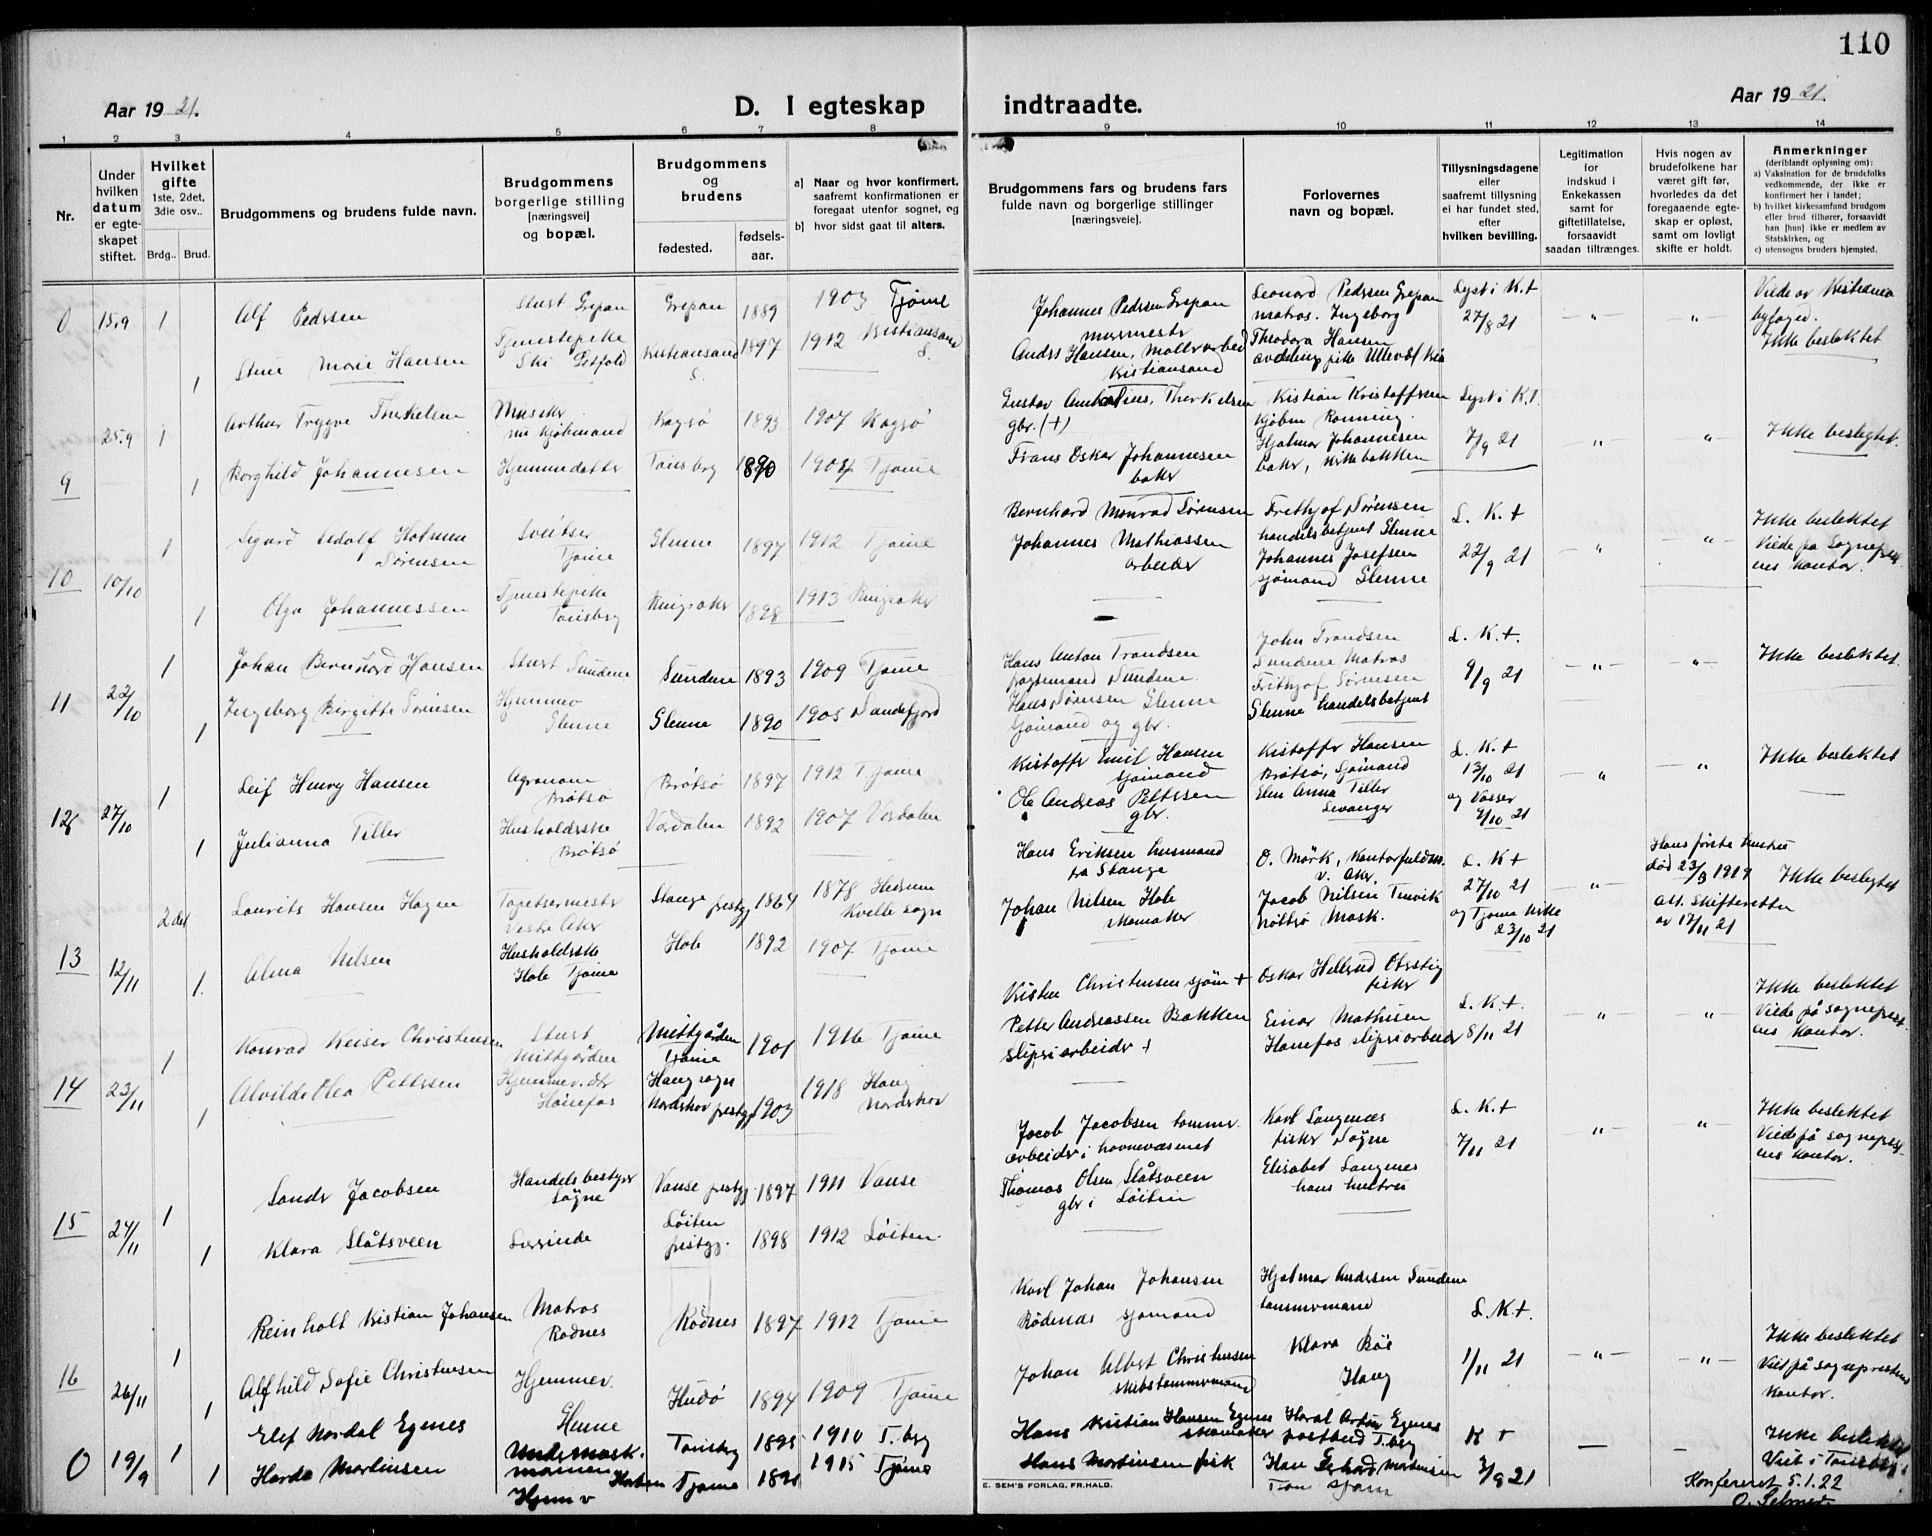 110
Aar 1921.
D. I egteskap indtraadte.
Aar 1921.
1 2 3 4 5 6 7 8 9 10 11 12 13 14
Nr.
Under hvilken datum er egteskapet stiftet.
Hvilket gifte 1ste, 2det, 3die osv..
Brdg.. Brud.
Brudgommens og brudens fulde navn.
Brudgommens borgerlige stilling [næringsvei] og bopæl.
Brudgommens og brudens
fødested. fødsels-aar.
a) Naar og hvor konfirmert, saafremt konfirmationen er foregaat utenfor sognet, og
b) hvor sidst gaat til alters.
Brudgommens fars og brudens fars fulde navn og borgerlige stillinger [næringsveie].
Forlovernes navn og bopæl.
Tillysningsdagene eller saafremt tillysning ei har fundet sted, efter hvilken bevilling.
Legitimation for indskud i Enkekassen samt for giftetillatelse, forsaavidt saadan tiltrænges.
Hvis nogen av brudefolkene har været gift før, hvorledes da det foregaaende egteskap er opløst, samt om lovligt skifte er holdt.
Anmerkninger (deriblandt oplysning om):
a) Vaksination for de brudefolks vedkommende, der ikke er konfirmert her i landet;
b) hvilket kirkesamfund brudgom eller brud tilhører, forsaavidt han [hun] ikke er medlem av Statskirken, og
c) utensogns bruders hjemsted.
0 15.9 1 Alf Pedersen Sturt Grepan Grepan 1889 1903 Tjøme
Johannes Pedersen Grepan murmester
Leonard Pedersen Grepan matros. Ingeborg
Lyst i K.t 27/8 21 — " — "
Viede av Kristiania byfoged. Ikke beslektet
1 Marie Hansen Tjenestepike Ski Østfold Kristiansand S. 1897 1912 Kristiansand S.
Anders Hansen, Kristiansand
Theodora Hansen
9 25.9 1 Arthur Trygve Therkelsen nu kjøbmand Kagsø 1893 1907 Kagsø
Gustav Therkelsen gbr. (+)
Kristian Kristoffersen kjøbm Rønning
Lyst i K.t. 7/9 21 " "
Ikke beslegtet.
1 Borghild Johannesen Hjemmedatter Tønsberg 1890 1904 Tjøme
Frans Oskar Johannesen baker
Hjalmar Johannesen baker, Kirkebakken
10 10/10 1 Sigurd Holmen Sørensen Sveitser Tjøme Glenne 1897 1912 Tjøme
Bernhard Monrad Sørensen
Frithjof Sørensen handelsbetjent Glenne
L. K. t 22/9 21 — " — "
Ikke beslektet Viede på sogneprestens kontor.
1 Olga Johannessen Tjenestepike Tønsberg Ringsaker 1898 1913 Ringsaker
Johannes Mathiassen arbeider
Johannes Josefsen sjømand Glenne
11 22/10 1 Johan Bernhard Hansen Sturt Sundene Sundene 1893 1909 Tjøme
Hans Anton Trondsen Sundene.
John Trondsen Sundene Matros
L. K. t. 9/9 21 — " — "
Ikke beslektet
1 Ingeborg Birgitte Sørensen Hjemmev Glenne Glenne 1890 1905 Sandefjord
Hans Sørensen Glenne sjømand og gbr.
Frithjof Sørensen Glenne handelsbetjent
12 27/10 1 Leif Henry Hansen Agronom Brøtsø Brøtsø 1897 1912 Tjøme
Kristoffer Emil Hansen sjømand
Kristoffer Hansen Brøtsø, Sjømand
L. K. t 13/10 21 og Vasser 9/10 21 " "
Ikke beslektet
1 Julianna Tiller Husholderske Brøtsø Verdalen 1892 1907 Verdalen
Ole Andreas Pettersen gbr.
Elen Anna Tiller Levanger
13 12/11 2det Laurits Hansen Hagen Tapetsermester Vestre Aker Stange prestgj 1864 1878 Hedrum Kvelle sogn
Hans Eriksen husmand fra Stange
O. Mørk, Kontorfuldm. v. Aker.
L. K t 27/10 21 og Tjøme kirke 23/10 21 — "
Hans første hustru død 23/3 1919 att. skifteretten av 17/11 21
Ikke beslegtet
1. Alma Nilsen Husholderske Hole Tjøme Hole 1892 1907 Tjøme
Johan Nilsen Hole skomaker
Jacob Nilsen Tenvik Nøtterø Mask.
14 23/11 1 Konrad Keiser Christensen Sturt Midtgården Midtgården Tjøme 1901 1916 Tjøme
Kristen Christensen sjøm +
Oskar Hellerud fisker
L. K. t. 8/11 21 " "
Ikke beslektet Viede på sogneprestens kontor.
1 Alvilde Olea Pettersen Hjemmev. dtr Hønefos Haug sogn Norderhov prestgj 1903 1918 Haug Norderhov
Petter Andreassen Bakken sliperiarbeider +
Einar Mathisen Hønefos sliperiarbeider
15 24/11 1 Sander Jacobsen Handelsbestyrer Søgne Vanse prestgj. 1897 1911 Vanse
Jacob Jacobsen tømmerarbeider i havnevæsenet
Karl Langenæs fisker Søgne
L. K. t 7/11 21 " "
Ikke beslektet Viede på sogneprestens kontor.
1 Klara Slåtsveen Lærerinde Løiten prestgj. 1898 1912 Løiten.
Thomas Olsen Slåtsveen gbr i Løiten
Elisabet Langenes hans hustru
16 26/11 1 Reinholt Kristian Johansen Matros Rødnes Rødnes 1897 1912 Tjøme
Karl Johan Johansen Rødnes sjømand
Hjalmar Andersen Sundene tømmermand
L. K. t. 1/11 21 — " — — " —
Ikke beslektet Viet på sogneprestens kontor.
1 Alfhild Sofie Christensen Hjemmev. Hudø 1894 1909 Tjøme
Johan Albert Christensen skibstømmermand
Klara Bøe Haug
0 19/9 1 Elef Nordal Egenes Tønsberg 1895 1910 T.berg
Hans Kristian Hansen Egenes skomaker
Haral Artur Egenes postbud T.berg
K t 3/9 21 — —
Ikke beslektet Viet i Tønsberg
1 Harda Martinsen Hjemv Tjøme 1915 Tjøme
Hans Martinsen fisk
Han Gerhard Martinsen sjøm
E. SEM'S FORLAG, FR.HALD.
Konfereret 5.1.22